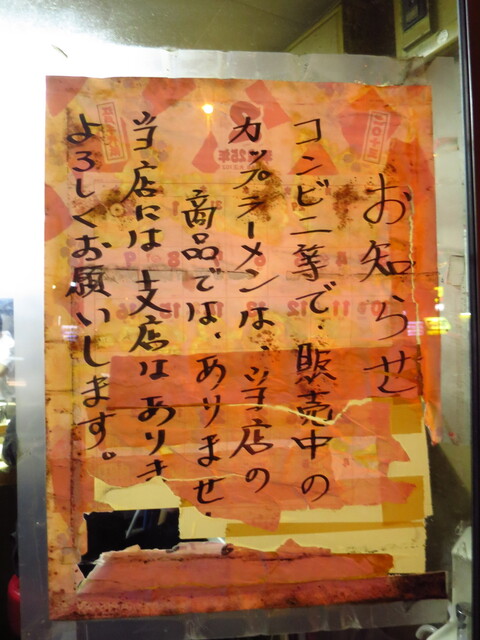 お知らせ
コンビニ等で、販売中の
カップラーメンは、当店の
商品では、ありませ
当店には支店はありま
よろしくお願いします。